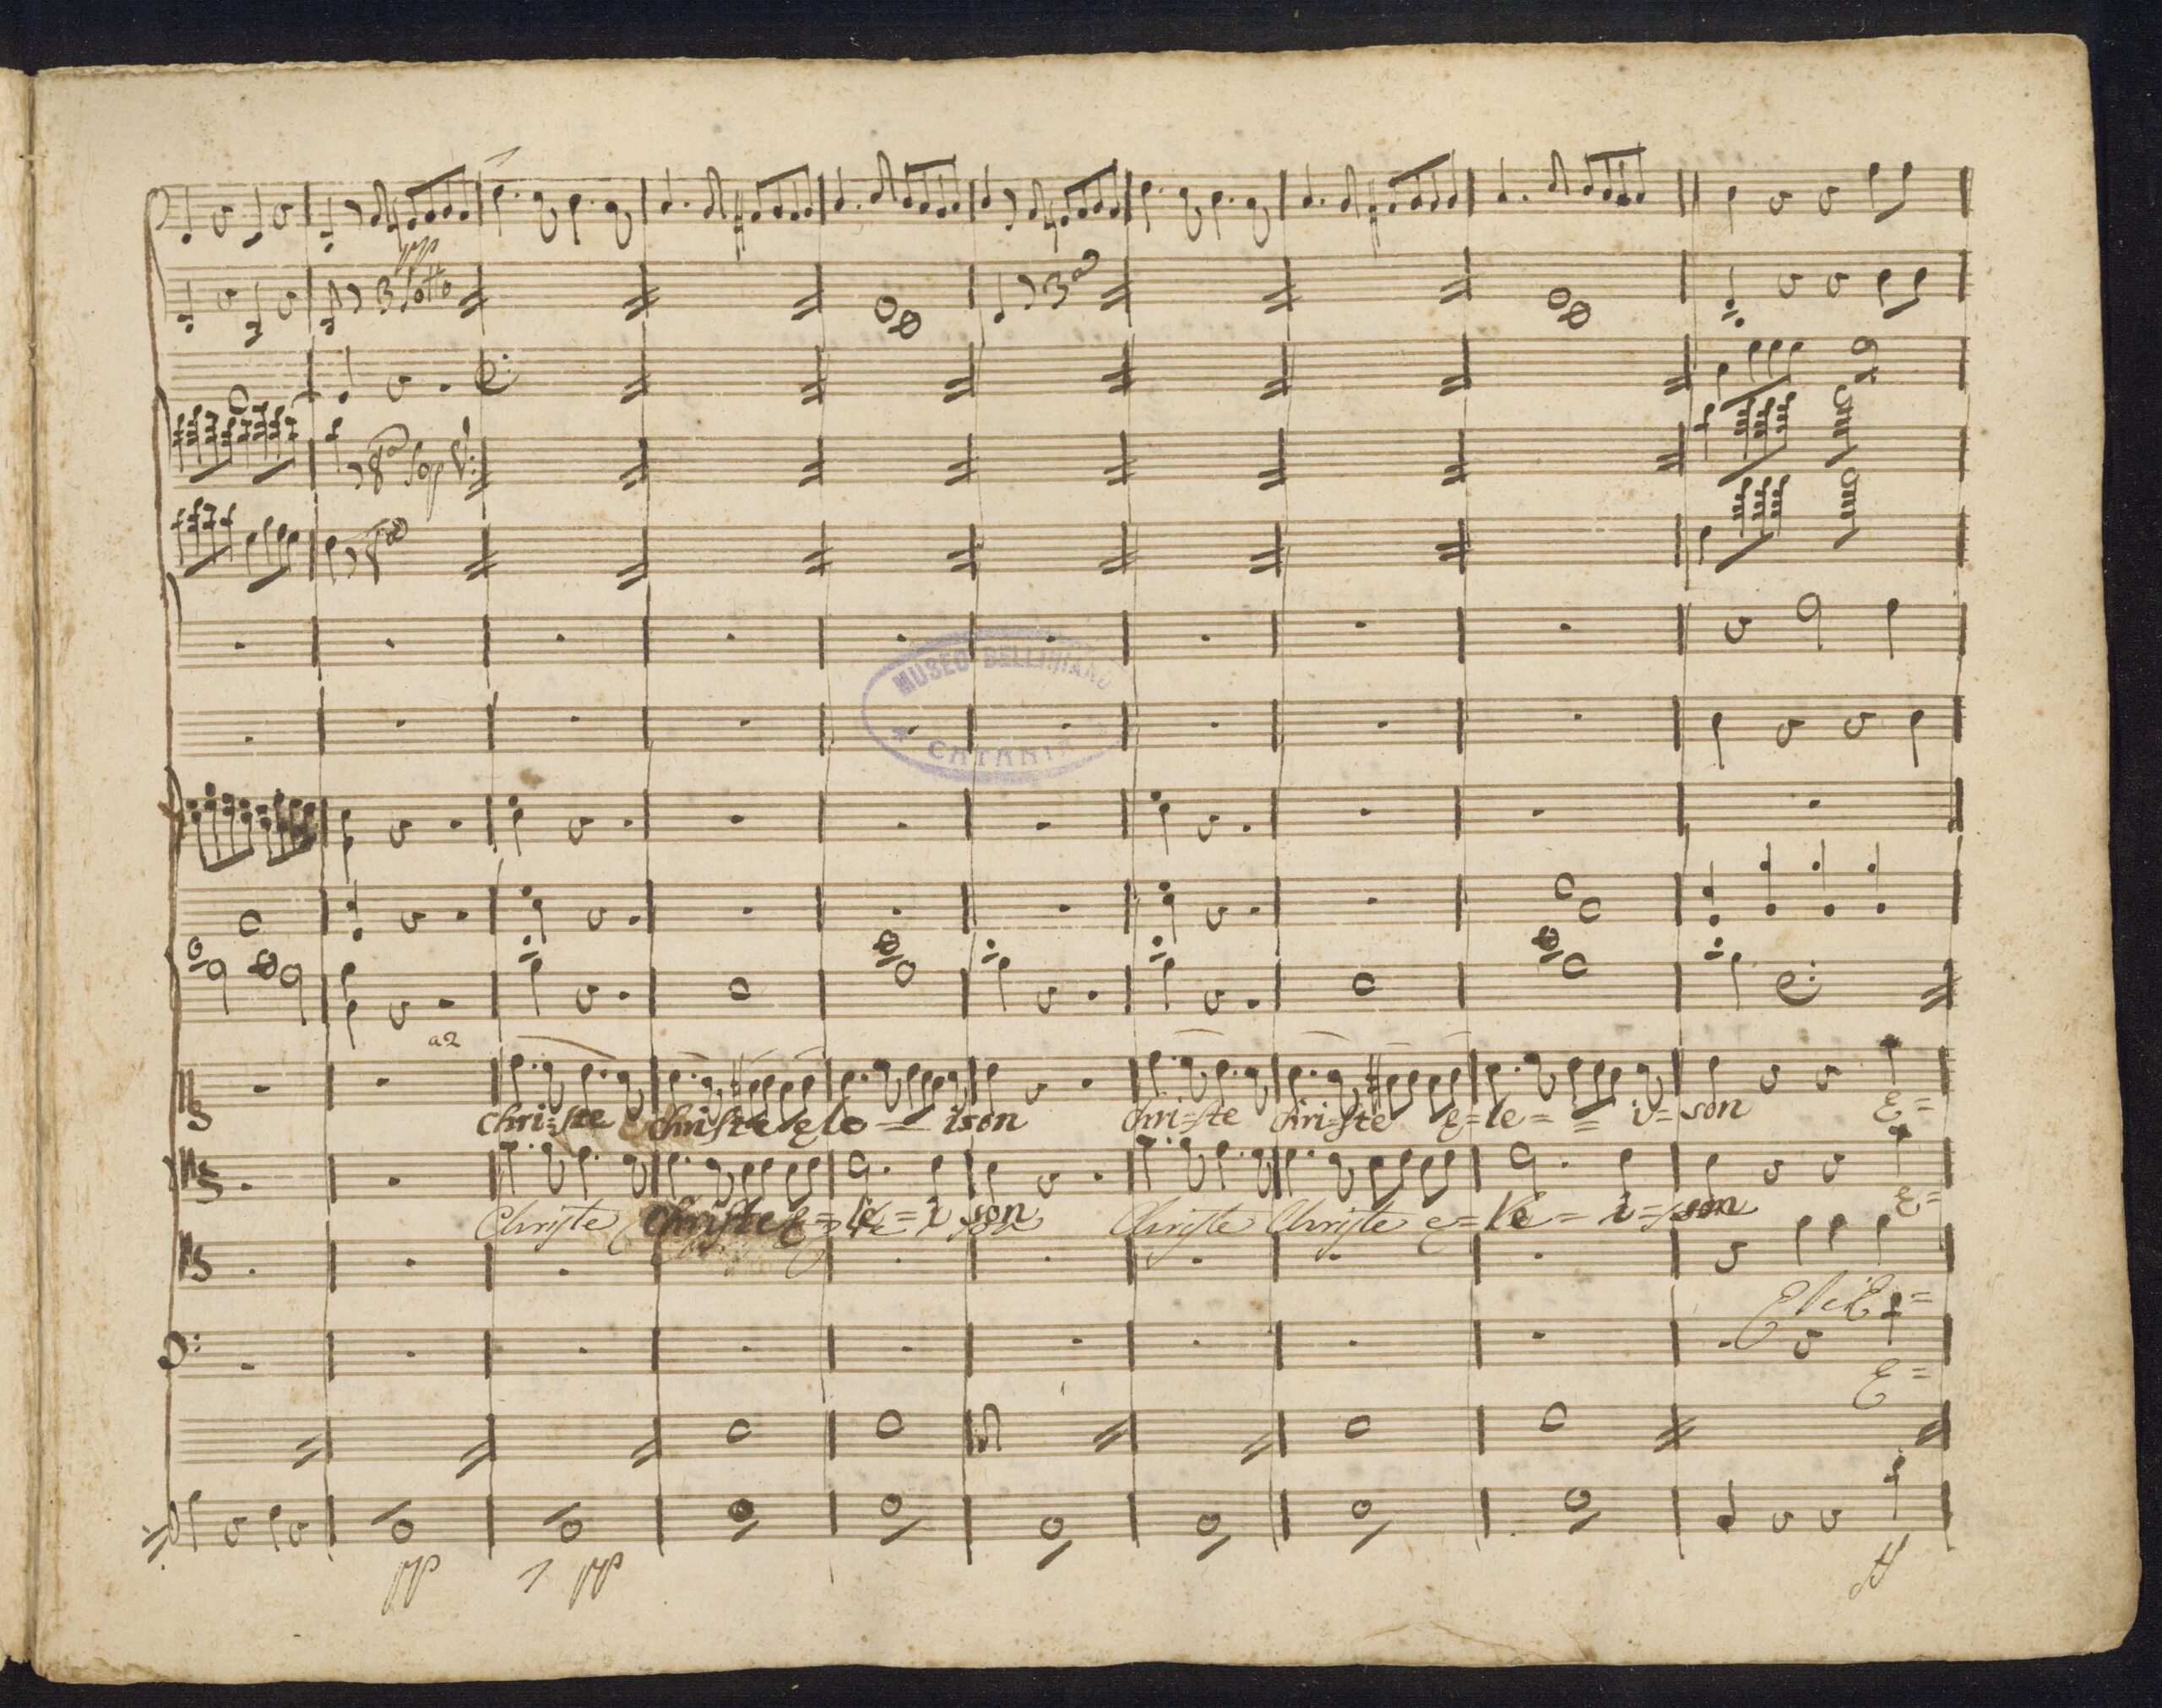 pp
3 sotto
3ª
8ª Sop
8ª
MUSEO BELLINIANO
CATANIA
a2
Chri=ste Christe ele = ison Chri=ste Chri=ste E=le= = i= son E=
Christe Christe E=le=i son Christe Christe e=le= i=son E=
E=
E=
pp 1 pp ff